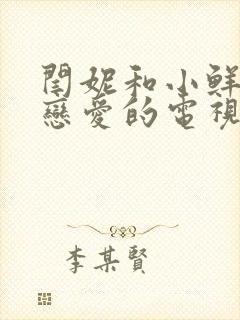 閆妮和小鮮
戀愛的電視
李某賢